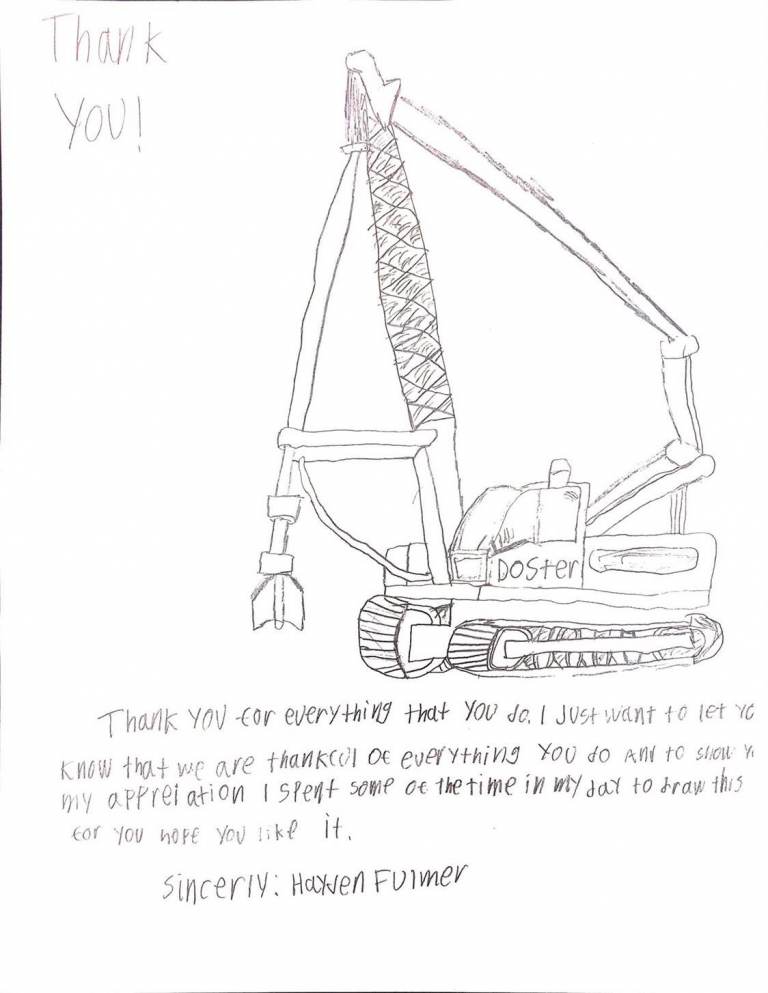 Thank
YOU!
DOSTer
Thank YOU for everything that YOU do. I Just want to let YO
Know that we are thankful of everything YOU do AND to show Y
my appreiation I spent some of the time in my day to draw this
for YOU hope YOU like it.
Sincerly: Hayden FUlmer